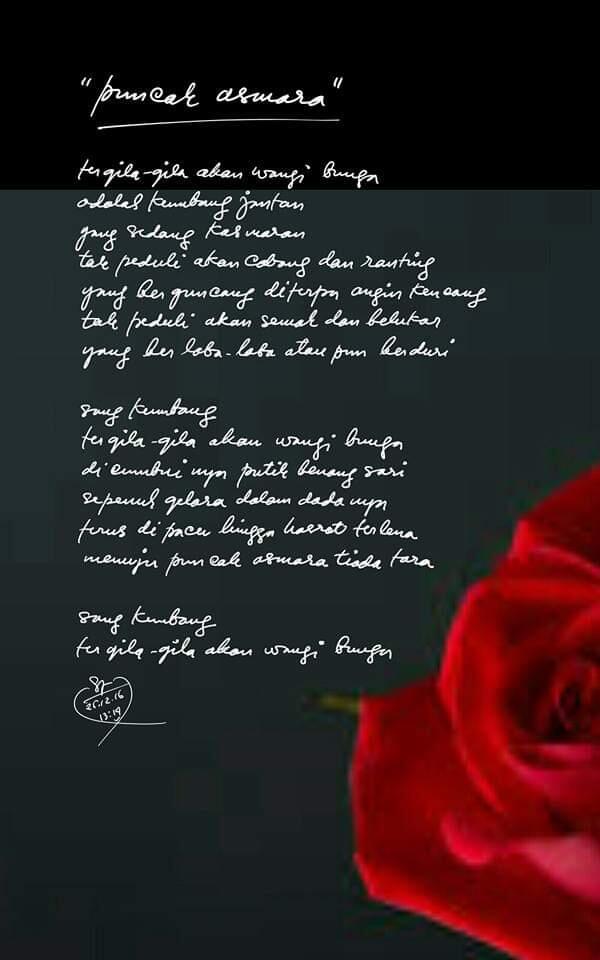 "puncak asmara"
tergila-gila akan wangi bunga
adalah kumbang jantan
yang sedang kasmaran
tak peduli akan cabang dan ranting
yang berguncang diterpa angin kencang
tak peduli akan semak dan belukar
yang ber laba-laba atau pun berduri
sang kumbang
tergila-gila akan wangi bunga
di cumbui nya putik benang sari
sepenuh gelora dalam dada nya
terus di pacu hingga hasrat terlena
menuju puncak asmara tiada tara
sang kumbang
tergila-gila akan wangi bunga
13:19